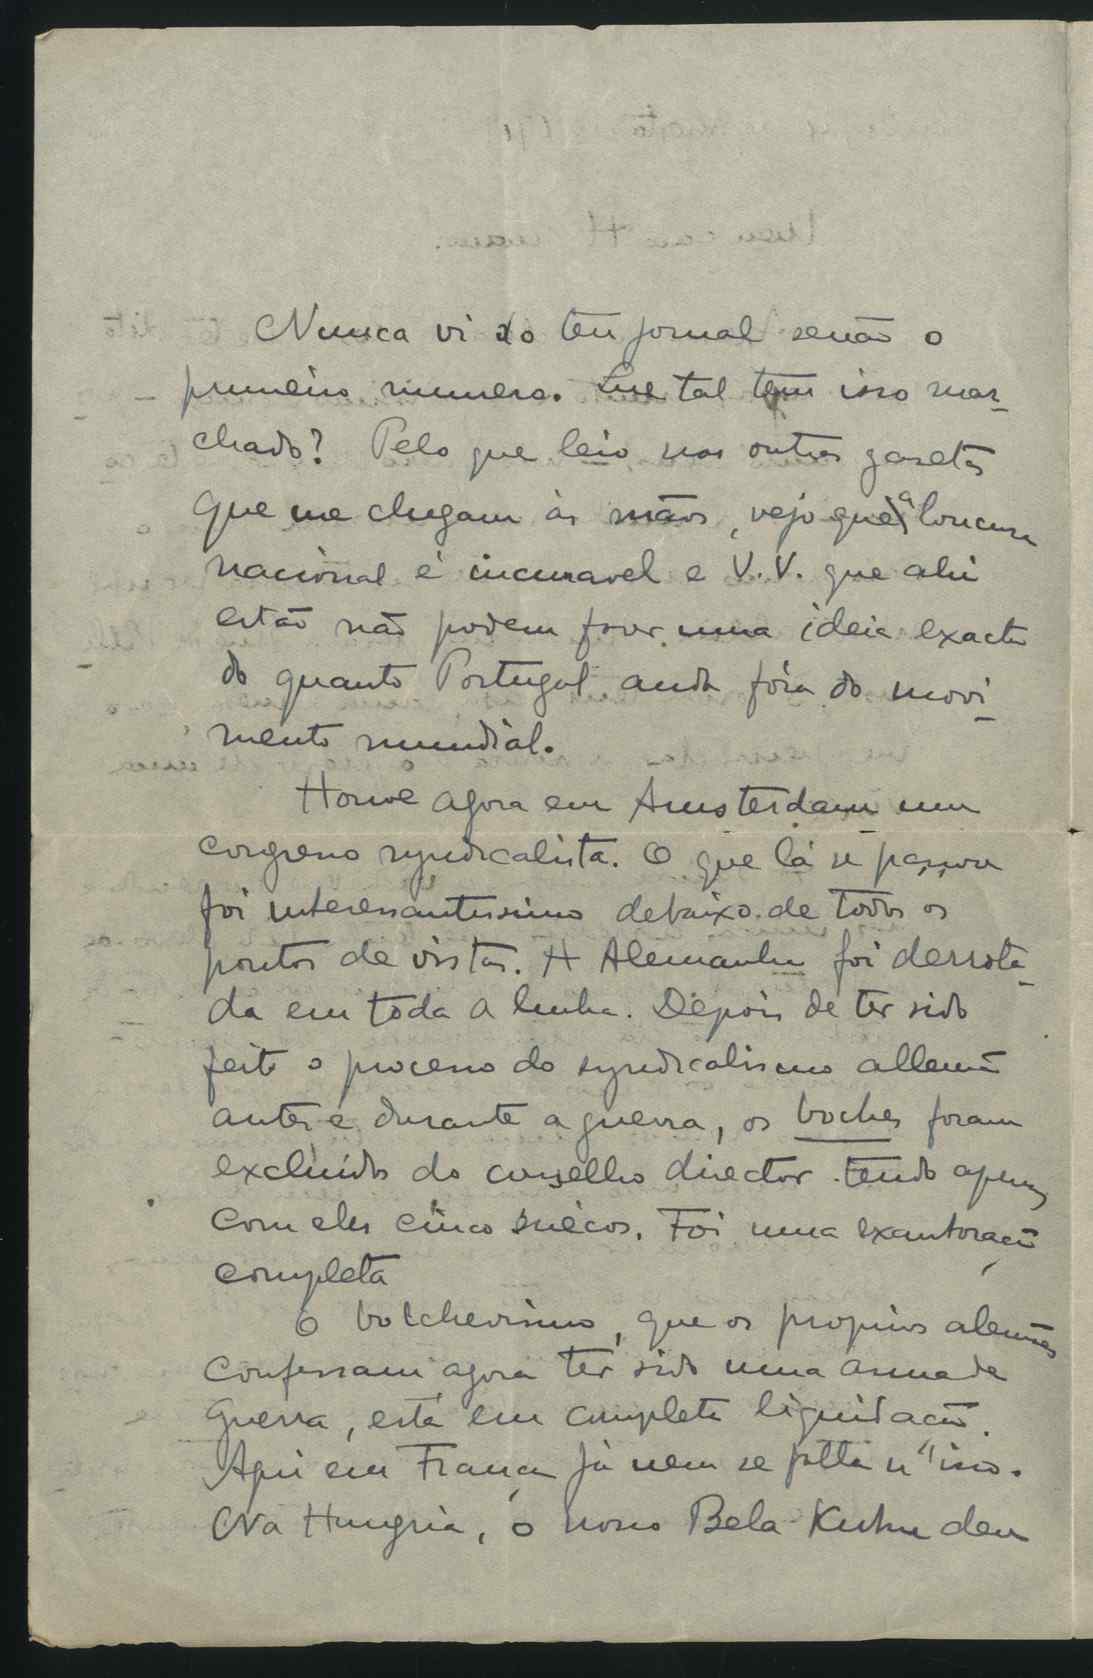 Nunca vi do teu jornal senão o
primeiro numero. Que tal tem isso mar-
chado? Pelo que leio nas outras gazetas
que me chegam ás mãos, vejo que a loucura
nacional é incuravel e V.V. que ahi
estão não podem fazer uma ideia exacta
do quanto Portugal anda fóra do movi-
mento mundial.
Houve agora em Amsterdam um
congresso syndicalista. O que lá se passou
foi interessantissimo debaixo de todos os
pontos de vistas. A Alemanha foi derrota-
da em toda a linha. Depois de ter sido
feito o processo do syndicalismo allemão
antes e durante a guerra, os boches foram
excluidos do conselho director tendo apenas
com eles cinco suécos. Foi uma exautoração
completa
O bolchevismo, que os proprios alemães
confessam agora ter sido uma arma de
guerra, está em completa liquidação.
Aqui em França já nem se falla n'isso.
Na Hungria, o nosso Bela Kuhn deu